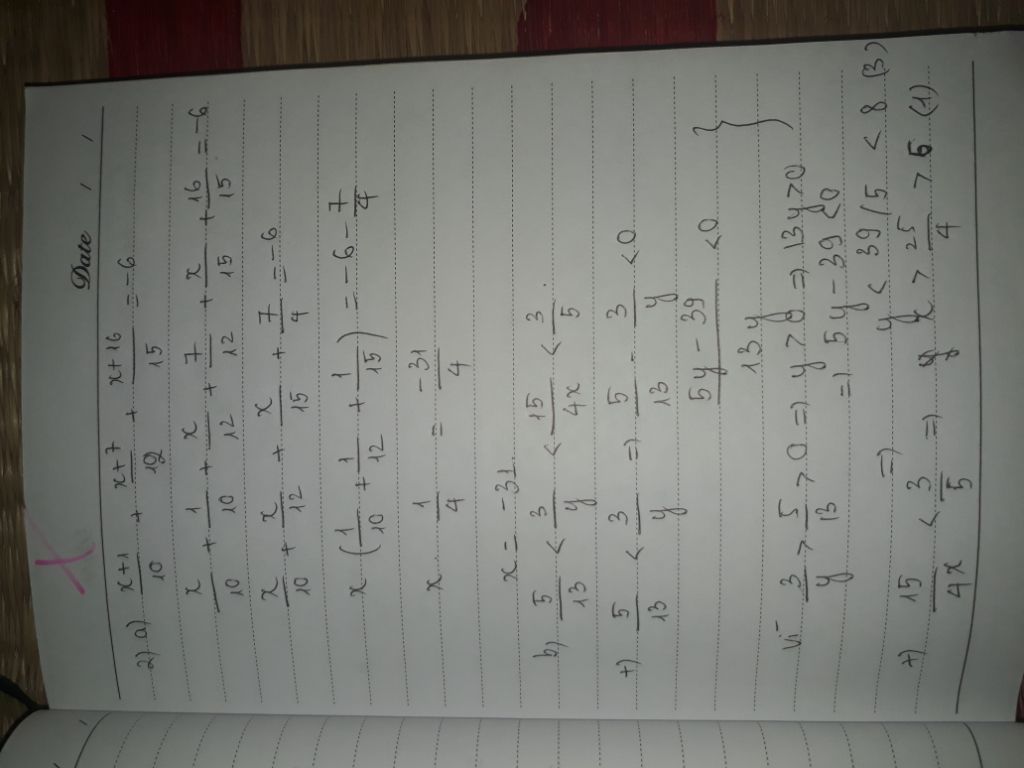 Date / /
2) a) (x+1)/10 + (x+7)/12 + (x+16)/15 = -6
x/10 + 1/10 + x/12 + 7/12 + x/15 + 16/15 = -6
x/10 + x/12 + x/15 + 7/4 = -6
x (1/10 + 1/12 + 1/15) = -6 - 7/4
x . 1/4 = -31/4
x = -31
b) 5/13 < 3/y < 15/4x < 3/5 .
+) 5/13 < 3/y => 5/13 - 3/y < 0
(5y - 39)/13y < 0 }
Vì 3/y > 5/13 > 0 => y > 0 => 13y > 0
=> 5y - 39 < 0
=> y < 39/5 < 8 (3)
+) 15/4x < 3/5 => x > 25/4 > 6 (1)